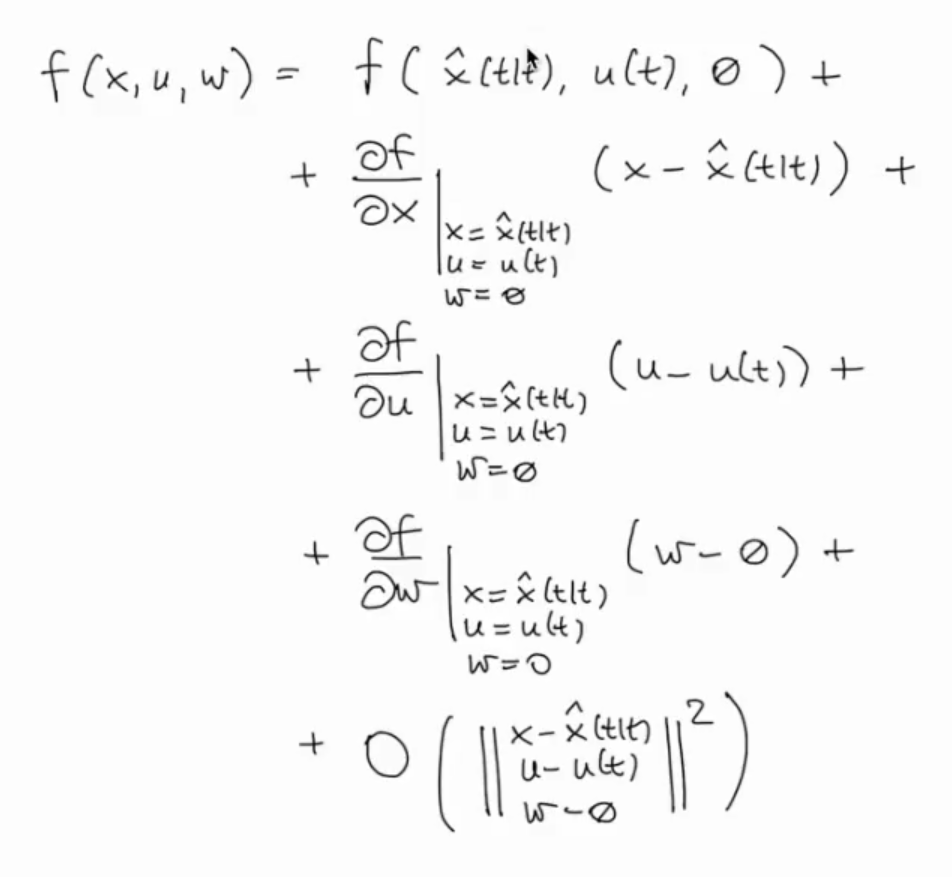 f(x,u,w) = f( x̂(t|t), u(t), ∅ ) +
+ ∂f/∂x | x=x̂(t|t) u=u(t) w=∅ (x - x̂(t|t)) +
+ ∂f/∂u | x=x̂(t|t) u=u(t) w=∅ (u - u(t)) +
+ ∂f/∂w | x=x̂(t|t) u=u(t) w=0 (w - ∅) +
+ O( ‖ x-x̂(t|t) u-u(t) w-∅ ‖² )